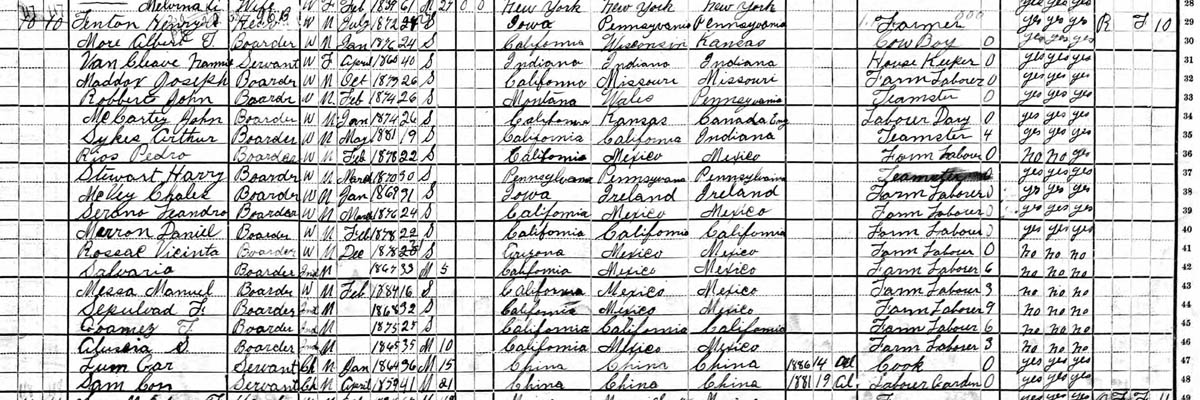 Melvina Wife W F Feb 1839 61 M 27 0 0 New York New York New York yes yes yes 28
40 40 Fenton Head W M July 1872 28 S Iowa Pennsylvania Pennsylvania Farmer yes yes yes R F 10 29
More Albert T. Boarder W M Jan 1876 24 S California Wisconsin Kansas Cow Boy 0 yes yes yes 30
Van Cleave Servant W F April 1860 40 S Indiana Indiana Indiana House Keeper 0 yes yes yes 31
Maddox Joseph Boarder W M Oct 1873 26 S California Missouri Missouri Farm Labourer 0 yes yes yes 32
Robbert John Boarder W M Feb 1874 26 S Montana Wales Pennsylvania Teamster 0 yes yes yes 33
McCarty John Boarder W M Jan 1874 26 S California Kansas Canada Eng Labour Day 0 yes yes yes 34
Sykes Arthur Boarder W M May 1881 19 S California California Indiana Teamster 4 yes yes yes 35
Rios Pedro Boarder W M Feb 1878 22 S California Mexico Mexico Farm Labour 0 no no yes 36
Stewart Harry Boarder W M March 1870 30 S Pennsylvania Pennsylvania Pennsylvania Teamster yes yes yes 37
Charles Boarder W M Jan 1869 31 S Iowa Ireland Ireland Farm Labourer 0 yes yes yes 38
Serano Leandro Boarder W M March 1876 24 S California Mexico Mexico Farm Labourer 0 yes yes yes 39
Merron Daniel Boarder W M Feb 1878 22 S California California California Farm Labourer 0 yes yes yes 40
Rossal Vicinta Boarder W M Dec 1878 S Arizona Mexico Mexico Farm Labour 0 no no no 41
Salvaria Boarder Ind M 1867 33 M 5 California Mexico Mexico Farm Labour 6 no no no 42
Messa Manuel Boarder W M Feb 1884 16 S California Mexico Mexico Farm Labour 3 no no no 43
Sepulvad F. Boarder Ind M 1868 32 S California Mexico Mexico Farm Labour 9 no no no 44
Goamez F. Boarder Ind M 1875 25 S California California California Farm Labour 6 no no no 45
S. Boarder Ind M 1865 35 M 10 California Mexico Mexico Farm Labour 3 no no no 46
Lum Gar Servant Ch M Jan 1864 36 M 15 China China China 1886 14 Cook 0 yes yes yes 47
Sam Con Servant Ch M April 1859 41 M 21 China China China 1881 19 Labour Garden 0 yes yes yes 48
49